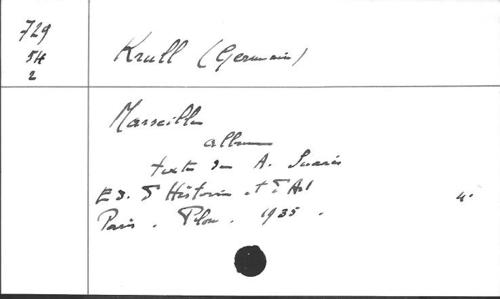 729
54
2
Krull (Germaine)
Marseille
album
texte de A. Suarès
Ed. d'Histoire et d'Art
4°
Paris. Plon. 1935.